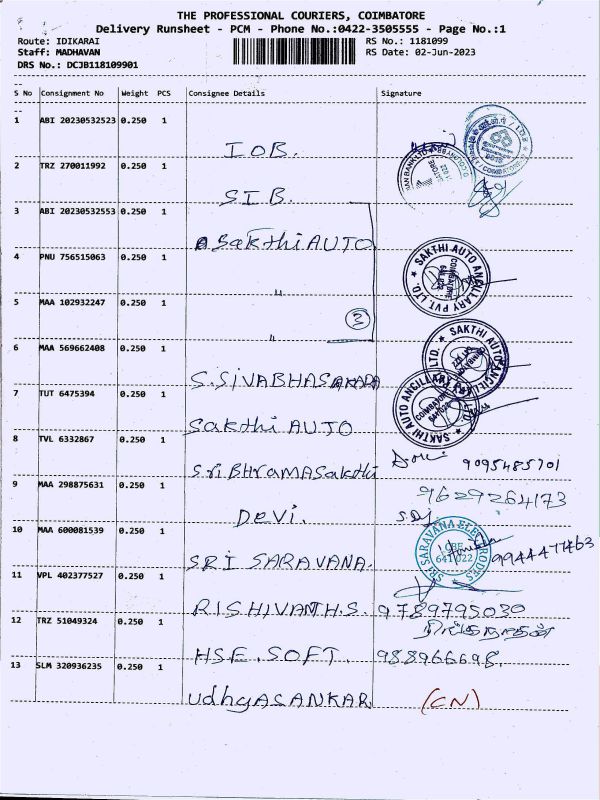 THE PROFESSIONAL COURIERS, COIMBATORE
Delivery Runsheet - PCM - Phone No.:0422-3505555 - Page No.:1
Route: IDIKARAI
Staff: MADHAVAN
DRS No.: DCJB118109901
RS No.: 1181099
RS Date: 02-Jun-2023
S No Consignment No Weight PCS Consignee Details Signature
1 ABI 20230532523 0.250 1
IOB.
2 TRZ 270011992 0.250 1
SIB.
3 ABI 20230532553 0.250 1
Sakthi AUTO
SAKTHI AUTO ANCILLARY PVT. LTD.
COIMBATORE
4 PNU 756515063 0.250 1
"
5 MAA 102932247 0.250 1
3
"
SAKTHI AUTO ANCILLARY LTD.
6 MAA 569662408 0.250 1
S.SIVABHASAKARA
SAKTHI AUTO ANCILLARY
COIMBATORE
7 TUT 6475394 0.250 1
Sakthi AUTO
8 TVL 6332867 0.250 1
Sri BHramaSakthi 9095485701
9 MAA 298875631 0.250 1
9629264173
DEVI.
10 MAA 600081539 0.250 1
SRI SARAVANA ELECTRODES
641 022
SRI SARAVANA. 9944477463
11 VPL 402377527 0.250 1
RISHIVANTH.S. 9789795030
12 TRZ 51049324 0.250 1
HSE.SOFT. 988966698.
13 SLM 320936235 0.250 1
UdhyASANKAR (CN)